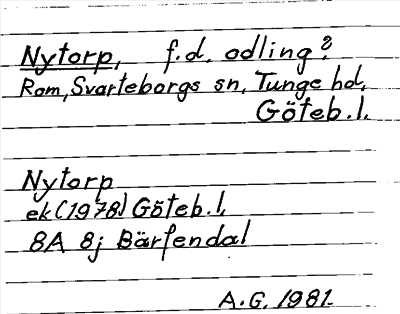 Nytorp, f.d. odling?
Rom, Svarteborgs sn, Tunge hd,
Göteb.l.
Nytorp
ek (1978) Göteb.l.
8A 8j Bärfendal
A.G. 1981.